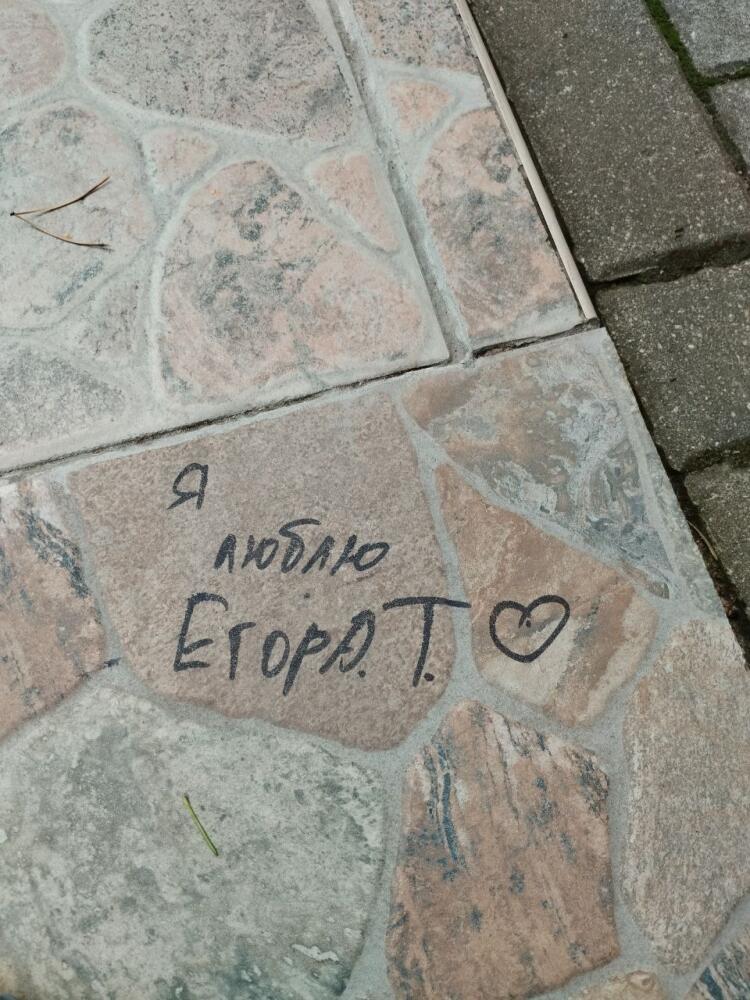 Я
люблю
Егора. Т. ♡